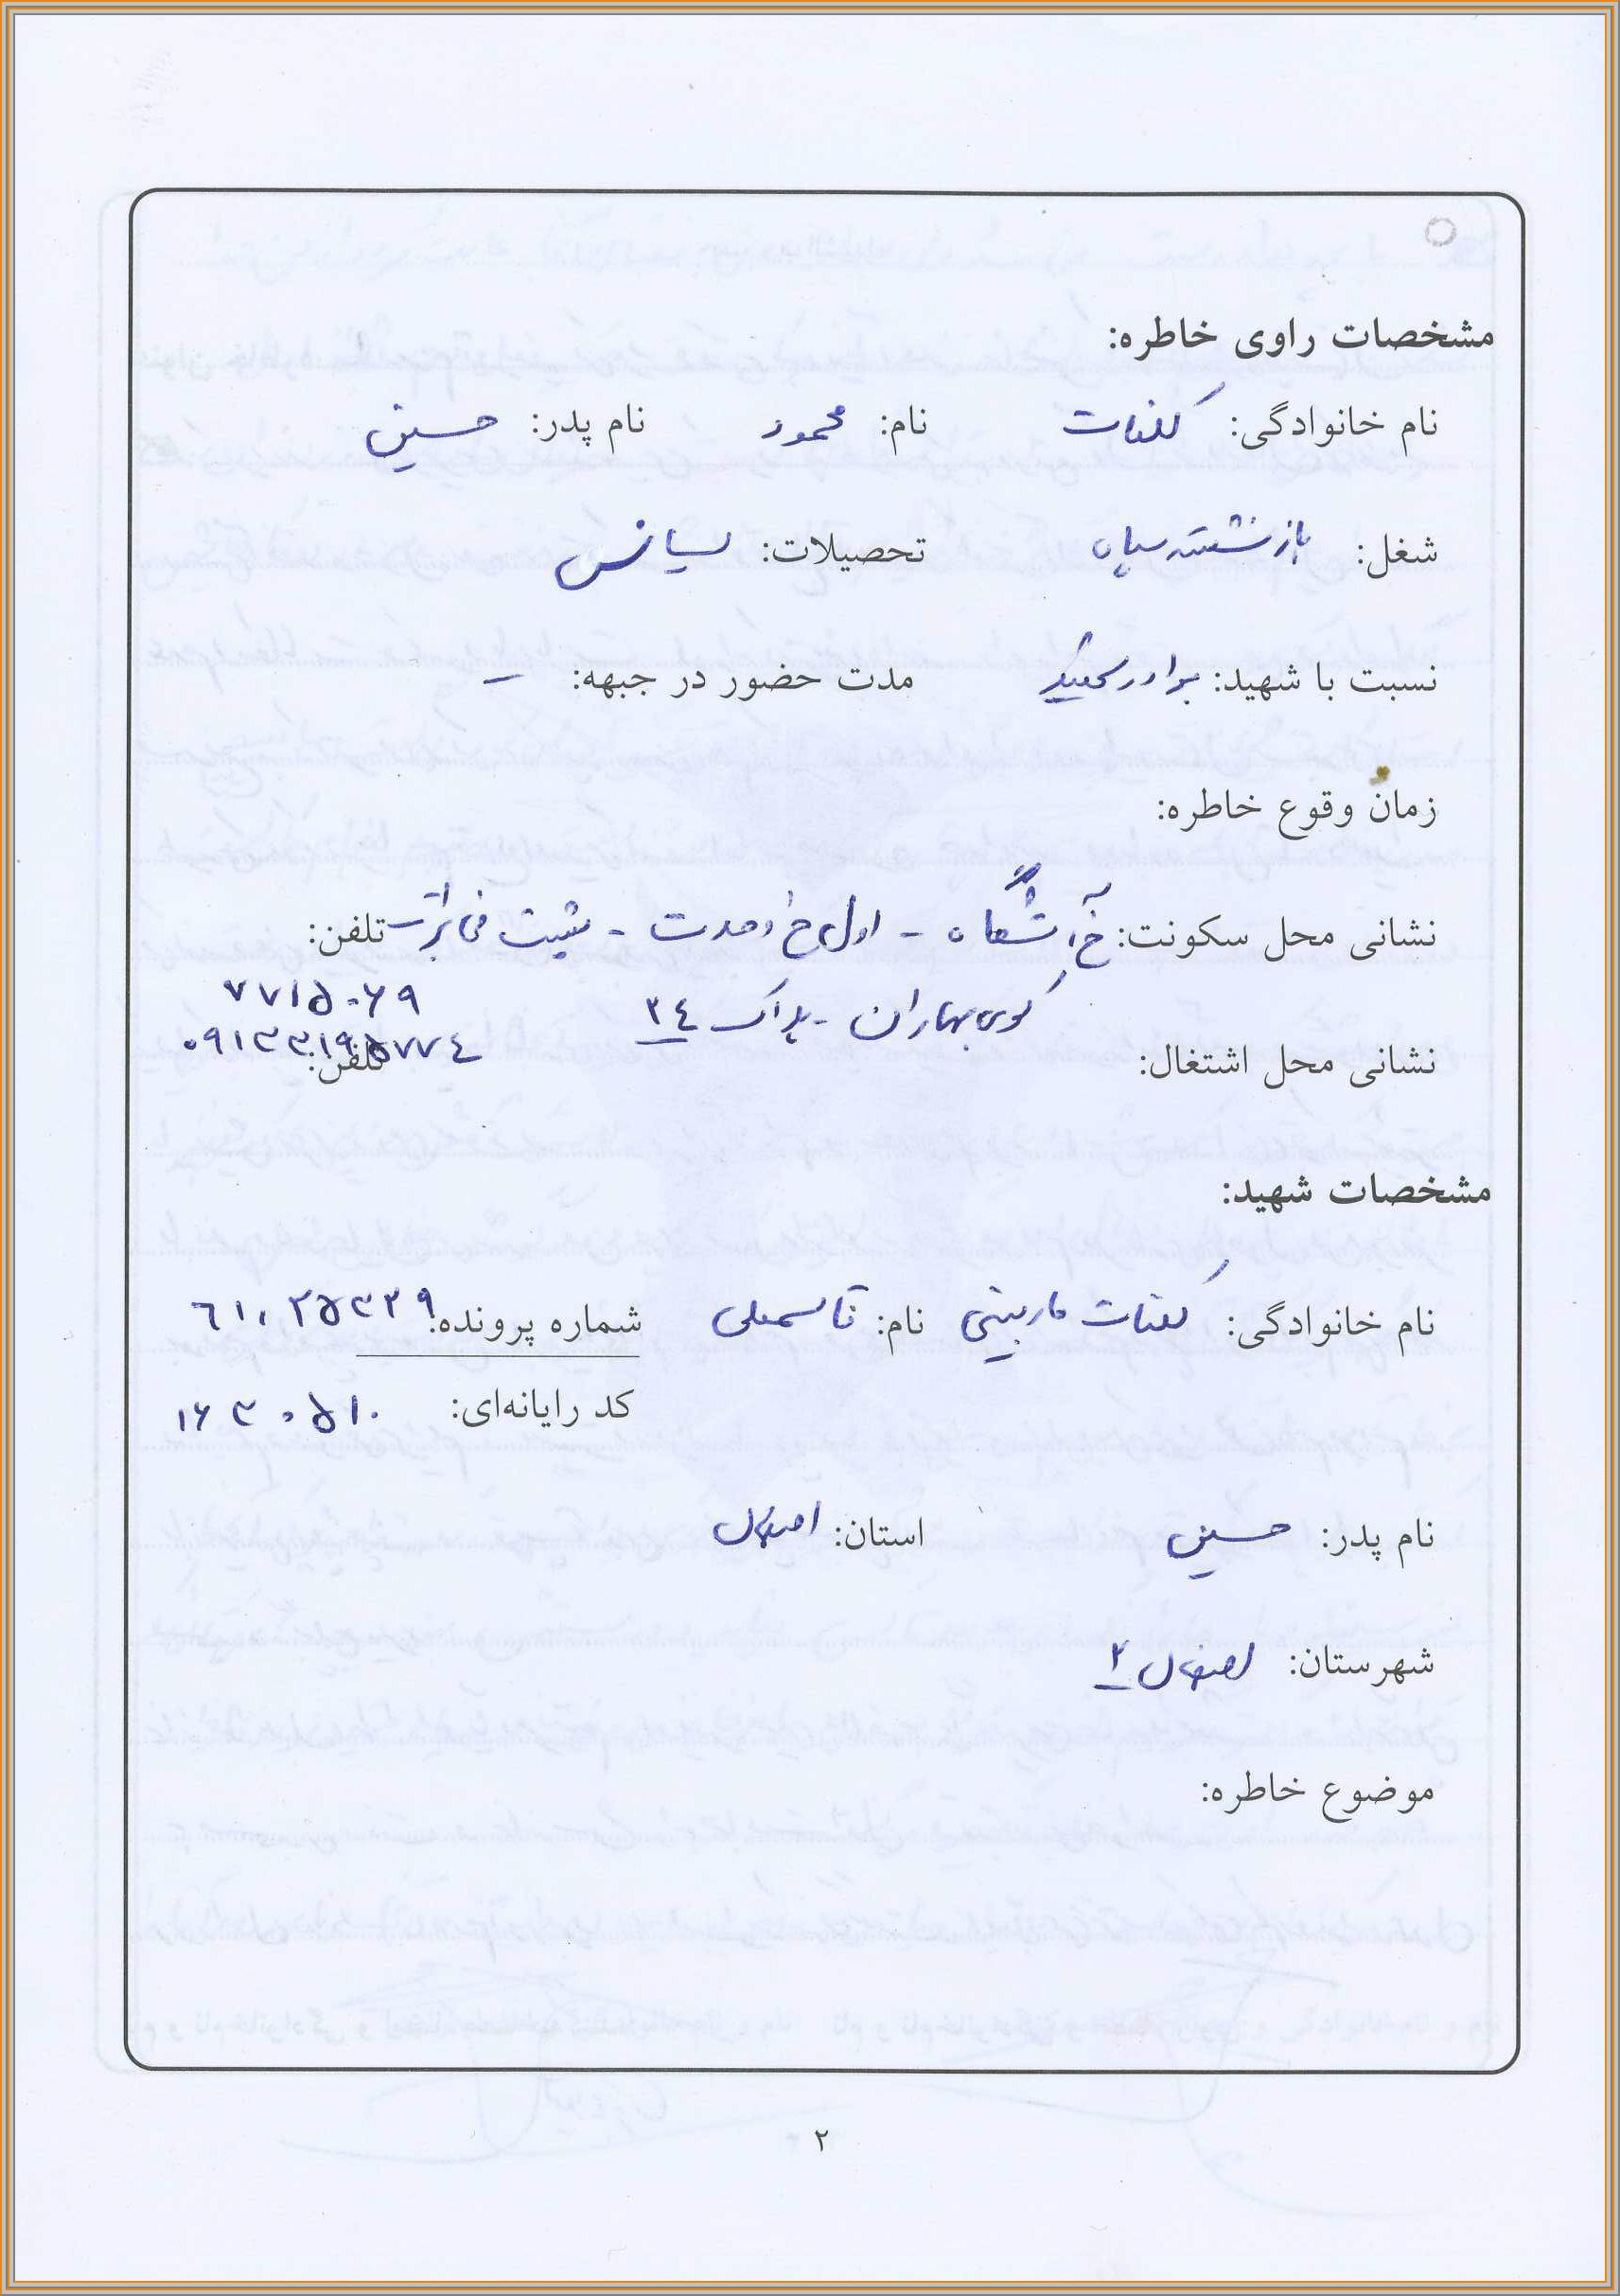 مشخصات راوی خاطره:
نام خانوادگی: کلفات نام: محمود نام پدر: حسین
شغل: بازنشسته سپاه تحصیلات: لیسانس
نسبت با شهید: برادر شهید مدت حضور در جبهه: –
زمان وقوع خاطره:
نشانی محل سکونت: خ آتشگاه - اول خ وحدت - پشت تلفن:
کوی بهاران - پلاک ۳۴ ۷۷۱۵۰۶۹
نشانی محل اشتغال: تلفن: ۰۹۱۳۳۱۹۵۷۷۴
مشخصات شهید:
نام خانوادگی: کلفات ماربینی نام: قاسمعلی شماره پرونده: ۶۱۰۲۵۳۲۹
کد رایانه‌ای: ۱۶۳۰۵۱۰
نام پدر: حسین استان: اصفهان
شهرستان: اصفهان ۲
موضوع خاطره:
۲